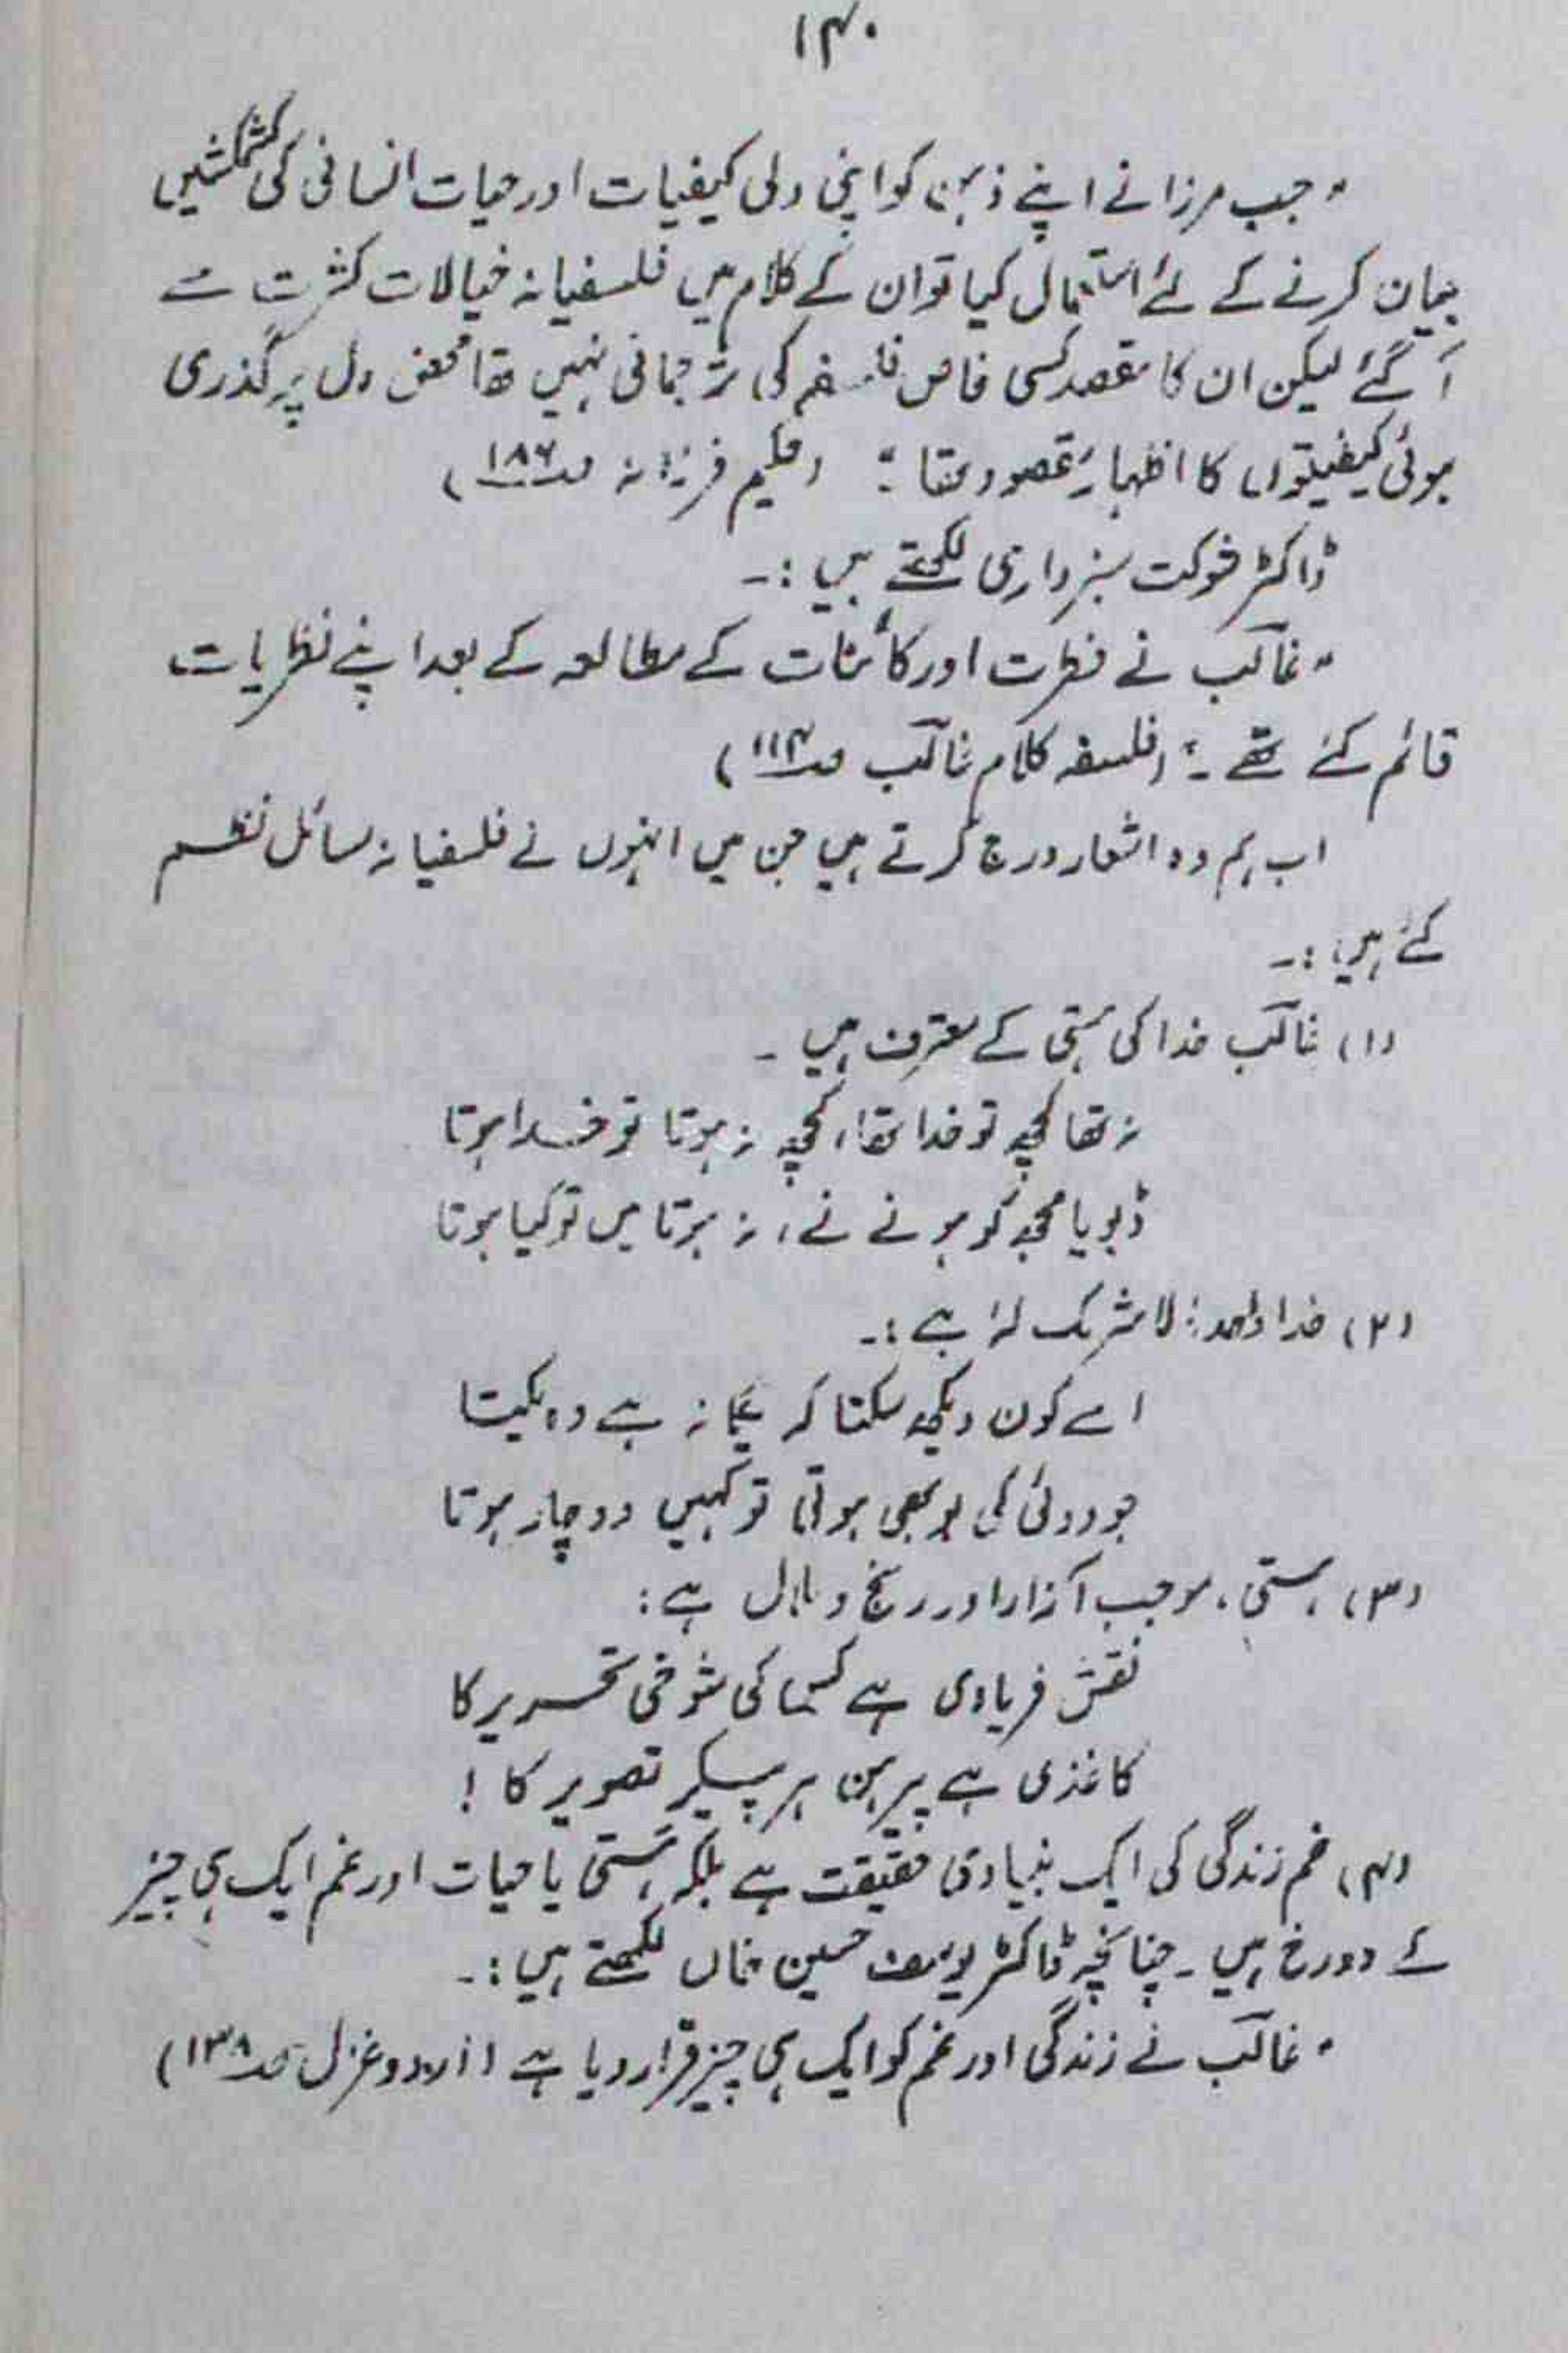 ۱۴۰
"جب مرزا نے اپنے ذہن کو اپنی دلی کیفیات اور حیات انسانی کی کشمکشیں
بیان کرنے کے لئے استعمال کیا تو ان کے کلام میں فلسفیانہ خیالات کثرت سے
آ گئے لیکن ان کا مقصد کسی خاص فلسفہ کی ترجمانی نہیں تھا محض دل پر گذری
ہوئی کیفیتوں کا اظہار مقصود تھا" (حکیم فرزانہ صـ۱۸۶)
ڈاکٹر شوکت سبزواری لکھتے ہیں :۔
"غالب نے فطرت اور کائنات کے مطالعہ کے بعد اپنے نظریات
قائم کئے تھے۔" (فلسفہ کلام غالب صـ۱۱۴)
اب ہم وہ اشعار درج کرتے ہیں جن میں انہوں نے فلسفیانہ مسائل نظم
کئے ہیں :۔
(۱) غالب خدا کی ہستی کے معترف ہیں ۔
نہ تھا کچھ تو خدا تھا، کچھ نہ ہوتا تو خدا ہوتا
ڈبویا مجھ کو ہونے نے، نہ ہوتا میں تو کیا ہوتا
(۲) خدا واحد، لا شریک لہٗ ہے :۔
اسے کون دیکھ سکتا کہ یگانہ ہے وہ یکتا
جو دوئی کی بو بھی ہوتی تو کہیں دو چار ہوتا
(۳) ہستی، موجب آزار اور رنج و ملال ہے :
نقش فریادی ہے کس کی شوخی تحریر کا
کاغذی ہے پیرہن ہر پیکر تصویر کا !
(۴) غم زندگی کی ایک بنیادی حقیقت ہے بلکہ ہستی یا حیات اور غم ایک ہی چیز
کے دو رخ ہیں ۔ چنانچہ ڈاکٹر یوسف حسین خاں لکھتے ہیں :۔
"غالب نے زندگی اور غم کو ایک ہی چیز قرار دیا ہے (اردو غزل صـ۱۳۸)